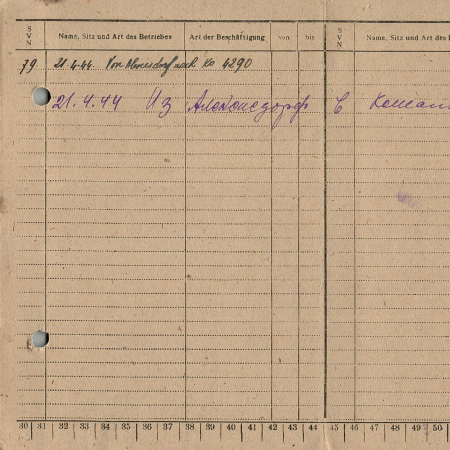 S V N Name, Sitz und Art des Betriebes Art der Beschäftigung von bis S V N Name, Sitz und Art des
79 21.4.44. Von nach Ko 4290
21.4.44 Из В
30 31 32 33 34 35 36 37 38 39 40 41 42 43 44 45 46 47 48 49 50